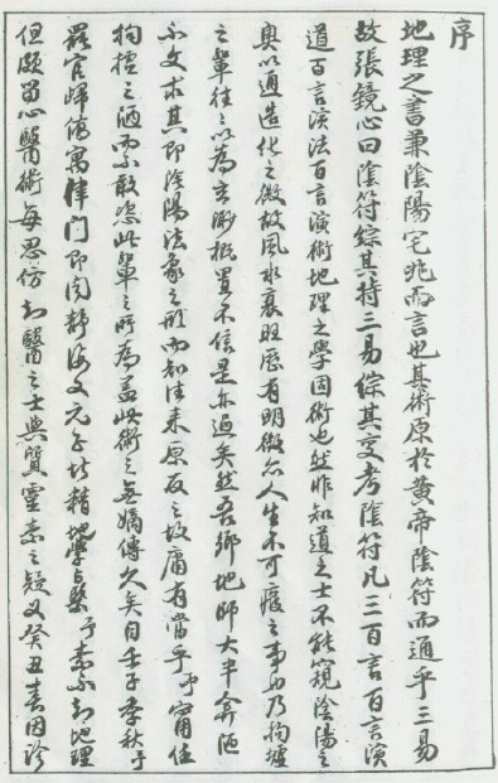 序
地理之書兼陰陽宅兆而言也其術原於黄帝陰符而通乎三易
故張鏡心曰陰符綜其持三易綜其变考陰符凡三百言百言演
道百言演法百言演術地理之學固術也然非知道之士不能窺陰陽之
奥以通造化之微故風水衰旺歷有明徵人生不可癈之事也乃拘墟
之輩往之以為玄渺概置不信是亦過矣然吾鄉地師大半弇陋
不文求其即陰陽法象之形而知往来原反之故庸有當乎予甯任
拘之陋而不敢恣此輩之所為盖此術之無嫡傳久矣自壬子季秋予
罷官歸僑寓津门即静海元精地學予素不知地理
但頗習心醫術每思仿知醫之士與質靈素之疑义癸丑春因診